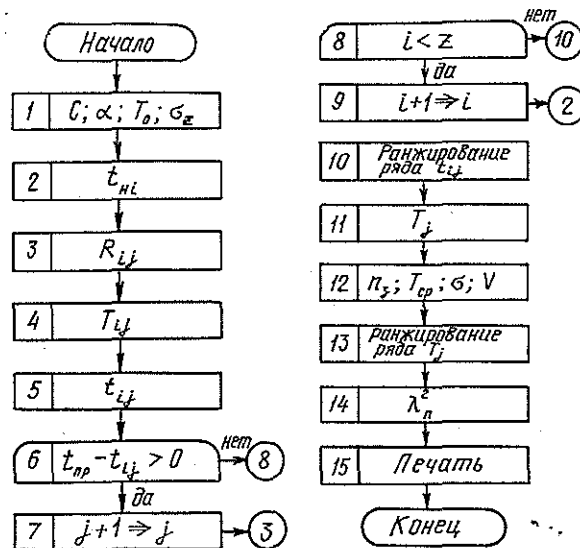 Начало
1 C; α; T₀; σ_z
2 t_нi
3 R_ij
4 T_ij
5 t_ij
6 t_пр − t_ij > 0 нет 8
да
7 j+1 ⇒ j 3
8 i < z нет 10
да
9 i+1 ⇒ i 2
10 Ранжирование
ряда t_ij
11 T_j
12 n_з; T_ср; σ; V
13 Ранжирование
ряда T_j
14 λ_п^г
15 Печать
Конец